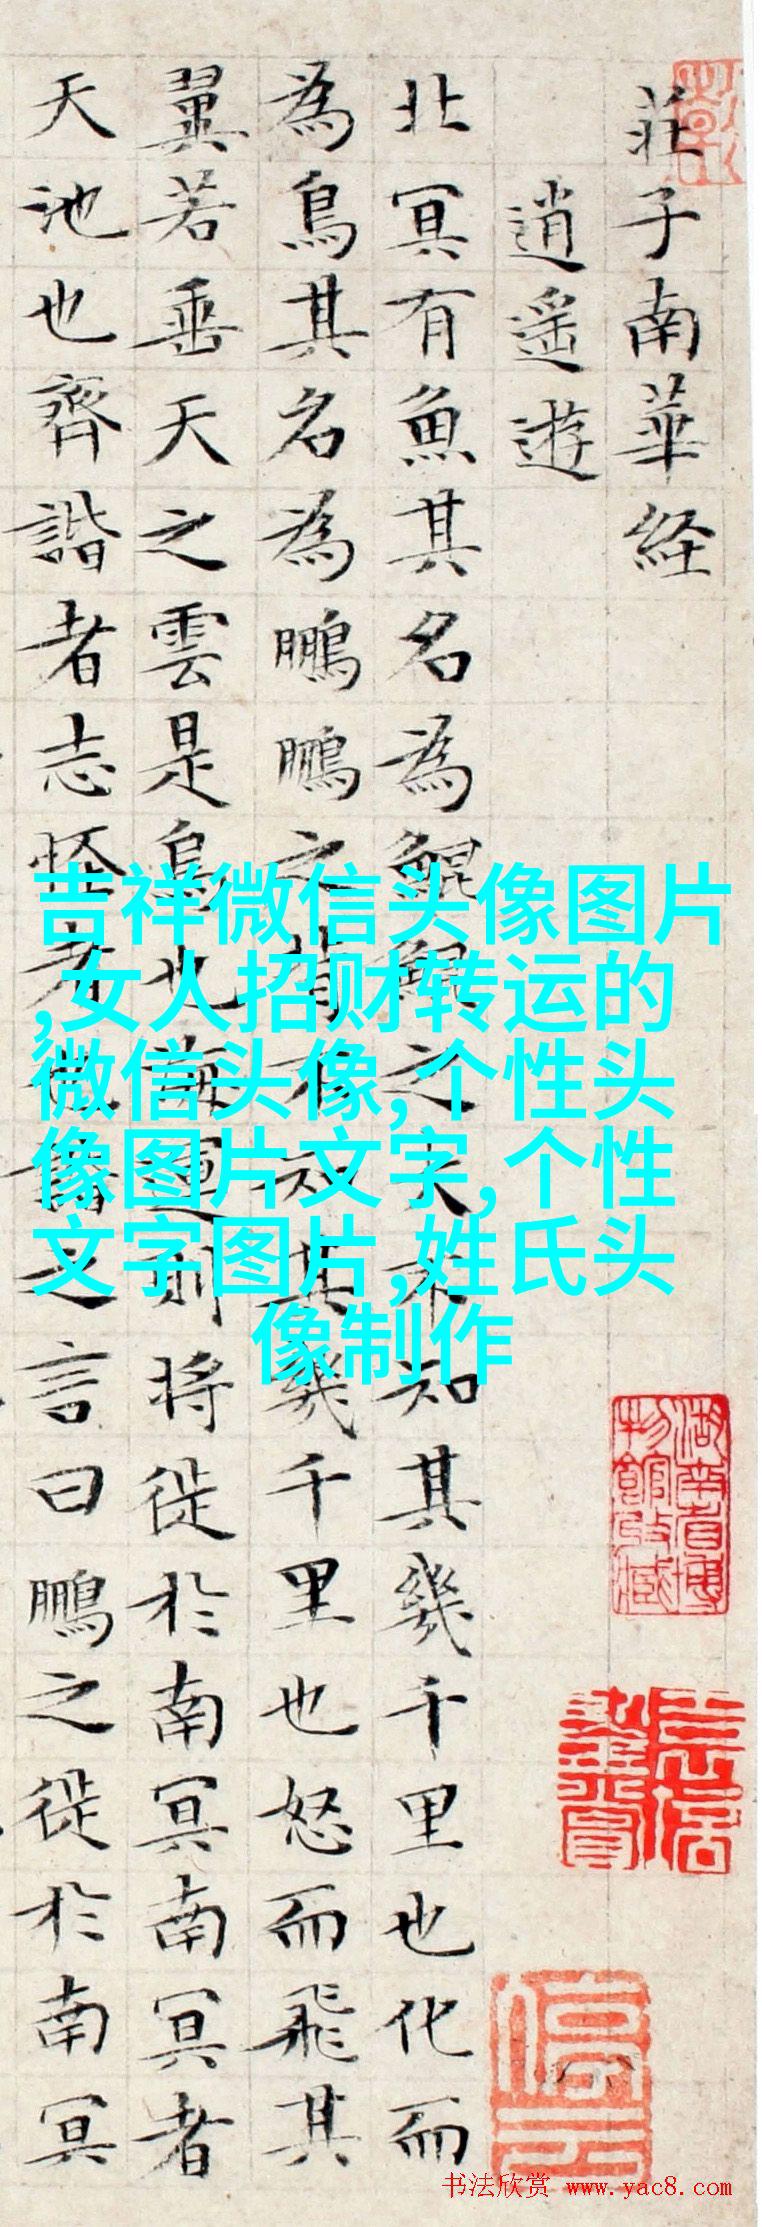 莊子南華経
逍遥遊
北冥有魚其名為鯤鯤之大不知其幾千里也化而
為鳥其名為鵬鵬之背不知其幾千里也怒而飛其
翼若垂天之雲是鳥也海運則将徙於南冥南冥者
天池也齊諧者志怪者也諧之言曰鵬之徙於南冥
吉祥微信头像图片
,女人招财转运的
微信头像,个性头
像图片文字,个性
文字图片,姓氏头
像制作
湖南省博
物館收藏
书法欣赏 www.yac8.com